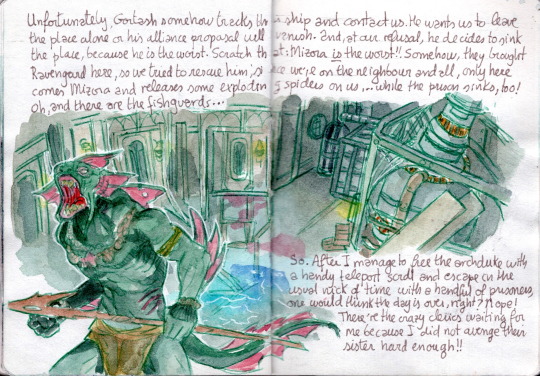 Unfortunately, Gortash somehow tracks the ship and contact us. He wants us to leave
the place alone or his alliance proposal will vanish. And, at our refusal, he decides to sink
the place, because he is the worst. Scratch that: Mizora is the worst!! Somehow, they brought
Ravengard here, so we tried to rescue him, since we're on the neighbour and all, only here
comes Mizora and releases some exploding spiders on us,... while the prison sinks, too!
Oh, and there are the fishguards...
So. After I manage to free the archduke with
a handy teleport scroll and escape in the
usual nick of time with a handful of prisoners,
one would think the day is over, right? Nope!
There're the crazy clerics waiting for
me because I did not avenge their
sister hard enough!!